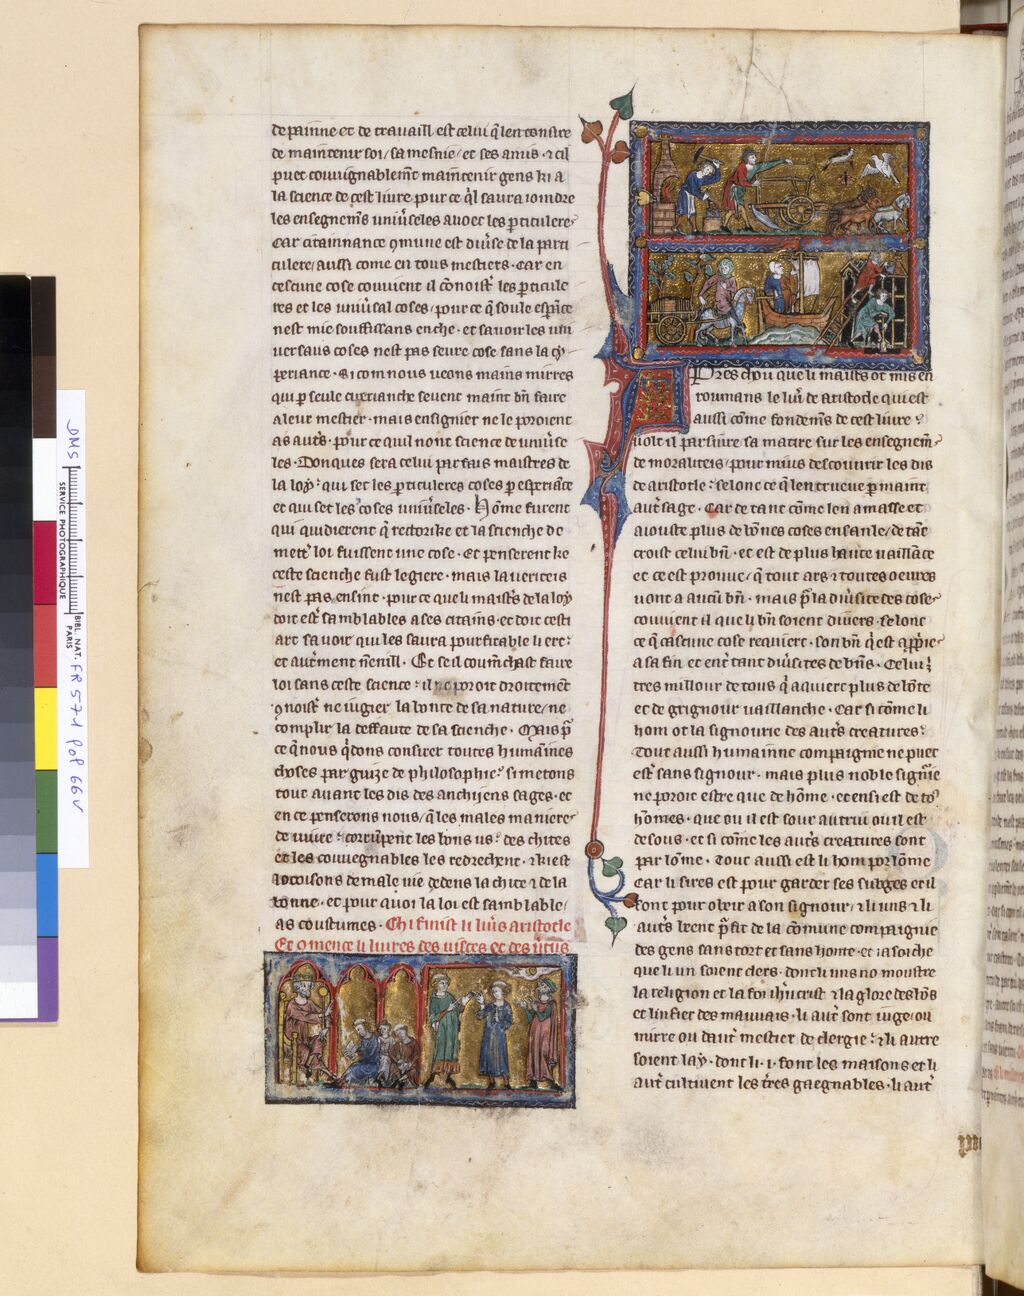 de painne et de trauaill est celui q̃ len consire
de maintenir soi / sa mesnie / et ses amis · ⁊ cil
puet couuignablemt̃ maintenir gens ki a
la science de cest liure pour ce q̃l saura ioindre
les ensegnemẽs uniũseles auoec les ꝑticuleres
Car citainnance ꝯmune est diũse de la parti
culere / aussi come en tous mestiers · Car en
cescune cose couuient il
res et les uniũsal coses / pour ce q̃ soule esp̃ance
nest mie souffissans en che · et sauoir les uni
uersaus coses nest pas seure cose sans la
periance · Si com nous ueons mains mirres
qui ꝑ seule seuent maint bñ faire
a leur mestier · mais ensignier ne le poroient
as autr̃s · pour ce quil nont science de uniũse
les · Donques sera celui parfais maistres de
la loy : qui set les ꝑticuleres coses ꝑ esperiãce
et qui set les coses uniũseles · Home furent
qui quidierent q̃ rectorike et la scienche de
metr̃ loi fuissent une cose · Et penserent ke
ceste scienche fust legiere · mais la uerites
nest pas ensint · pour ce que li maistr̃s de la loy
doit estr̃ samblables a ses citains · et doit cesti
art sauoir qui les saura pourfitable li ert :
et autr̃ment nẽnill · Et se il coum̃chast faire
loi sans ceste science : il ne poroit droitement
ꝯnoistr̃ ne iugier la bonte de sa nature / ne
complir la deffaute de sa scienche · Mais
ce q̃ nous q̃dons consirer toutes humaines
choses par guize de philosophie : si metons
tout auant les dis des anchijens sages · et
en ce penserons nous / q̃les males manieres
de uiure : corrũpent les bons us : des chites
et les couuegnables les redrechent · ⁊ ki est
ocoisons de male uie dedens la chite ⁊ de la
bonne · et pour quoi la loi est samblable /
as coustumes · Chi finist li liur̃s aristotle
Et ꝯmence li liures des uisces et des ũtus
Pres chou que li maistr̃s ot mis en
roumans le liur̃ de aristotle qui est
aussi cõme fondemẽs de cest liure :
uolt il parsiure sa matire sur les ensegnemẽs
de moraliteis / pour mius descouurir les dis
de aristotle : selonc ce q̃ len trueue ꝑ maint
autr̃ sage · Car de tant cõme len amasse et
aiouste plus de bõnes coses ensanle / de tãt
croist celui bñ · et est de plus haute uaillãce
et ce est prouue / q̃ tout ars ⁊ toutes oeures
uont a aucũ bñ · mais ꝑ la diũsite des coses
couuient il que li bñ soient diuers · selonc
ce q̃ cascune cose requiert · son bñ q̃ est apꝑrie
a sa fin et entr̃ tant diũsites de bñs · Celui ÷
tres millour de tous q̃ aquiert plus de bõte
et de grignour uaillanche · Car si cõme li
hom ot la signourie des autr̃s creatures :
Tout aussi humainne compaignie ne puet
estr̃ sans signour · mais plus noble signĩe
ne poroit estre que de hõme · et ensi est de toˀ
hõmes · que ou il est sour autrui ou il est
desous · et si cõme les autr̃s creatures sont
par lõme · Tout aussi est li hom por lõme
Car li sires est pour garder ses subges et il
sont pour obeir a son signour / ⁊ li uns ⁊ li
autr̃s beent ꝑfit de la cõmune compaignie
des gens sans tort et sans honte · et ia soiche
que li un soient clers · dont li uns no moustre
la religion et la foi ih̃ucrist ⁊ la glore des bõs
et linfier des mauuais · li autr̃ sont iuge / ou
mirre ou dautr̃ mestier de clergie : ⁊ li autre
soient lay · dont li · i · font les maisons et li
autr̃ cultiuent les tr̃es gaegnables · li autr̃
DMS
SERVICE PHOTOGRAPHIQUE
BIBL. NAT. PARIS
FR 571 fol 66 v